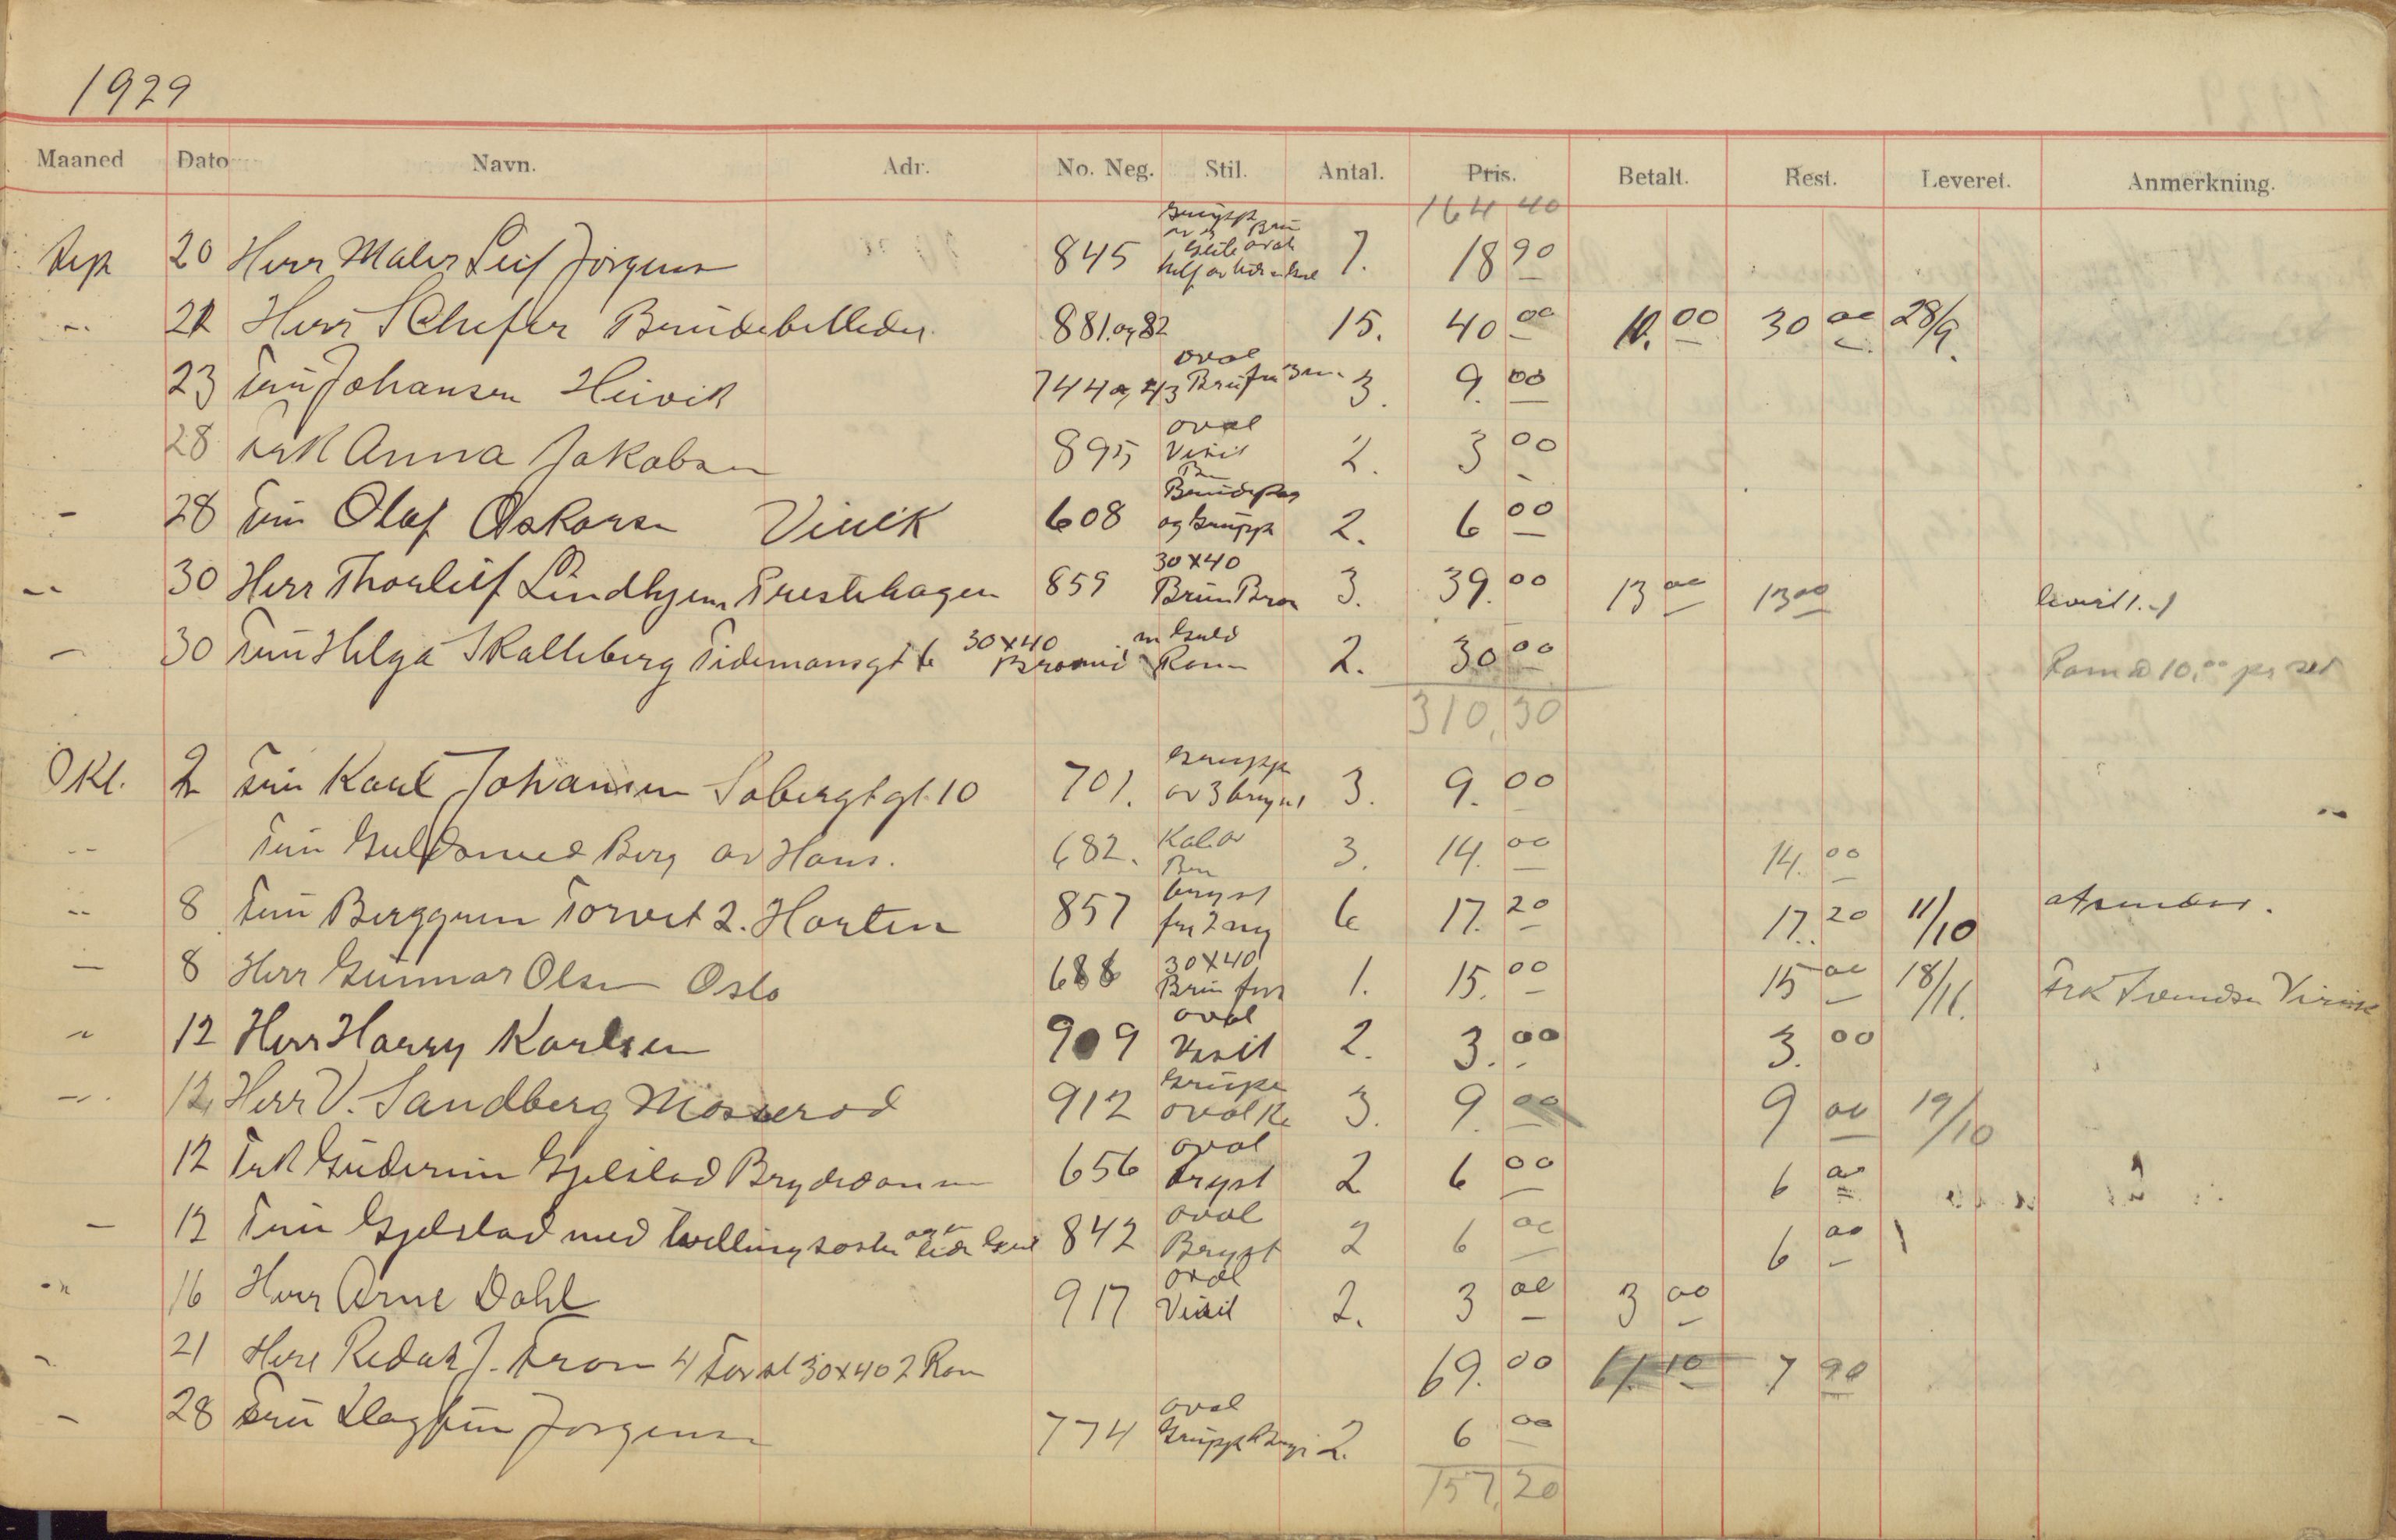 1929
Maaned Dato Navn. Adr. No. Neg. Stil. Antal. Pris. Betalt. Rest. Leveret. Anmerkning.
164 40
Sep 20 Herr Maler Leif Jörgens 845 Grupp Brun oval 7. 18 90
21 Herr Brudebilleder 881. og 82 15. 40 00 10. 00 30 00 28/9.
23 Fru Johansen Heivik 744 og 43 oval Brun fra 3 9. 00
28 Frk Anna Jakobsen 895 oval Visit 2. 3 00
- 28 Fru Olaf Oskarsen Viulk 608 Brudepar og Grupp 2. 6 00
30 Herr Thorleif Lindhjem Prestehagen 859 30x40 Brun Brom 3. 39. 00 13 00 13 00
- 30 Fru Helga Skalleberg Tidemansgt 6 30x40 Bromid m Guld Ram 2. 30 00 Ram a 10,00 pr
310,30
Okt. 2 Fru Karl Johansen gt. 10 701. Grupp av 3 bryst 3. 9. 00
Fru Guldsmed Berg av Hans. 682. 3. 14. 00 14. 00
8 Fru Berggren Torvet 2. Horten 857 bryst 6 17. 20 17. 20 11/10
- 8 Herr Gunnar Olsen Oslo 688 30x40 Brun 1. 15. 00 15 00 18/11. Frk Svendsen
12 Herr Harry Karlsen 909 oval Visit 2. 3. 00 3. 00
12, Herr V. Sandberg Mosserød 912 Gruppe oval 3. 9. 00 9 00 19/10
12 Frk Guderun Gjelstad 656 oval bryst 2 6 00 6 00
- 12 Fru Gjelstad med tvillingsøster 842 oval Bryst 2 6 00 6 00
16 Herr Arne Dahl 917 oval Visit 2. 3 00 3 00
21 Herr Redak J. Fron 4 Forst 30x40 2 Ram 69. 00 61. 10 7 90
- 28 Fru Dagfin Jorgensen 774 oval Grupp 2. 6 00
157,20